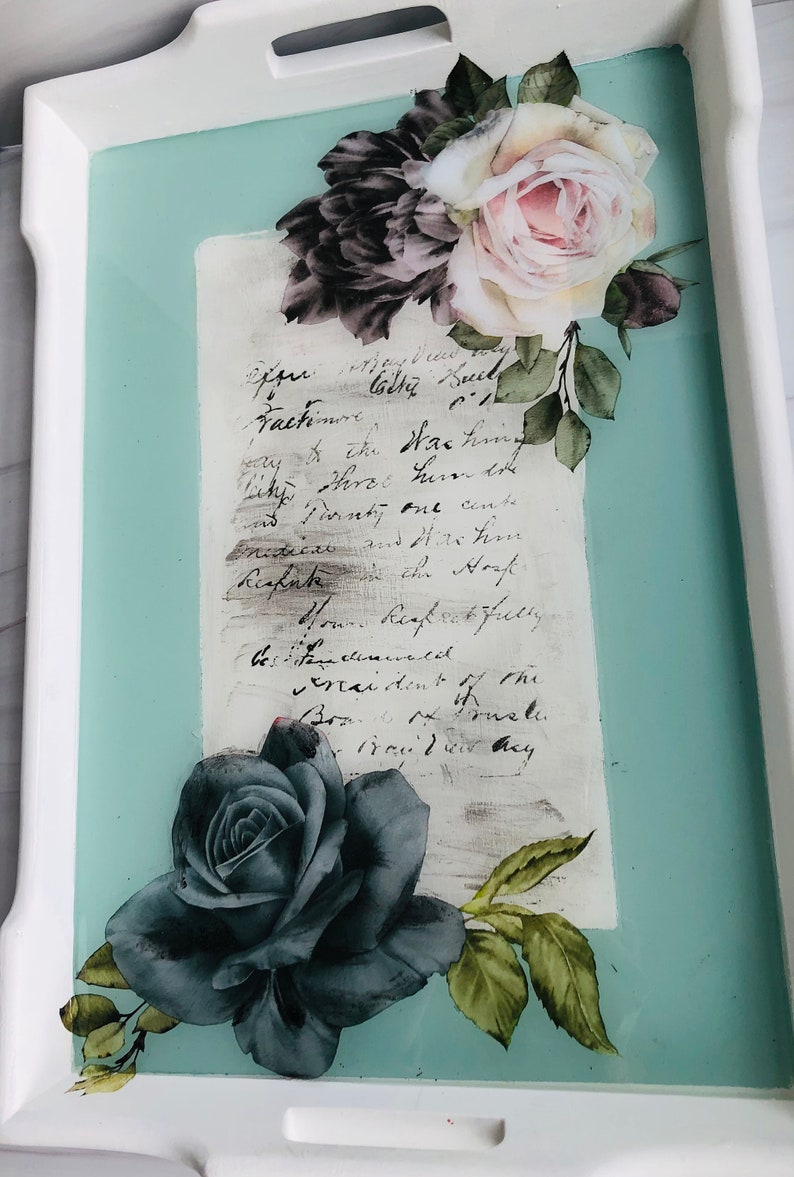 Bay View Asy
City
Baltimore
to the Washing
Three hundre
and Twenty one cents
medical and Washin
in the Hosp
Yours Respectfully
President of the
Board of Trustee
Bay View Asy